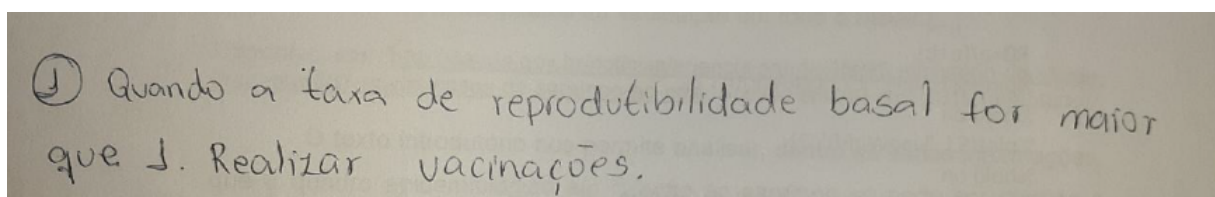 ① Quando a taxa de reprodutibilidade basal for maior
que 1. Realizar vacinações.